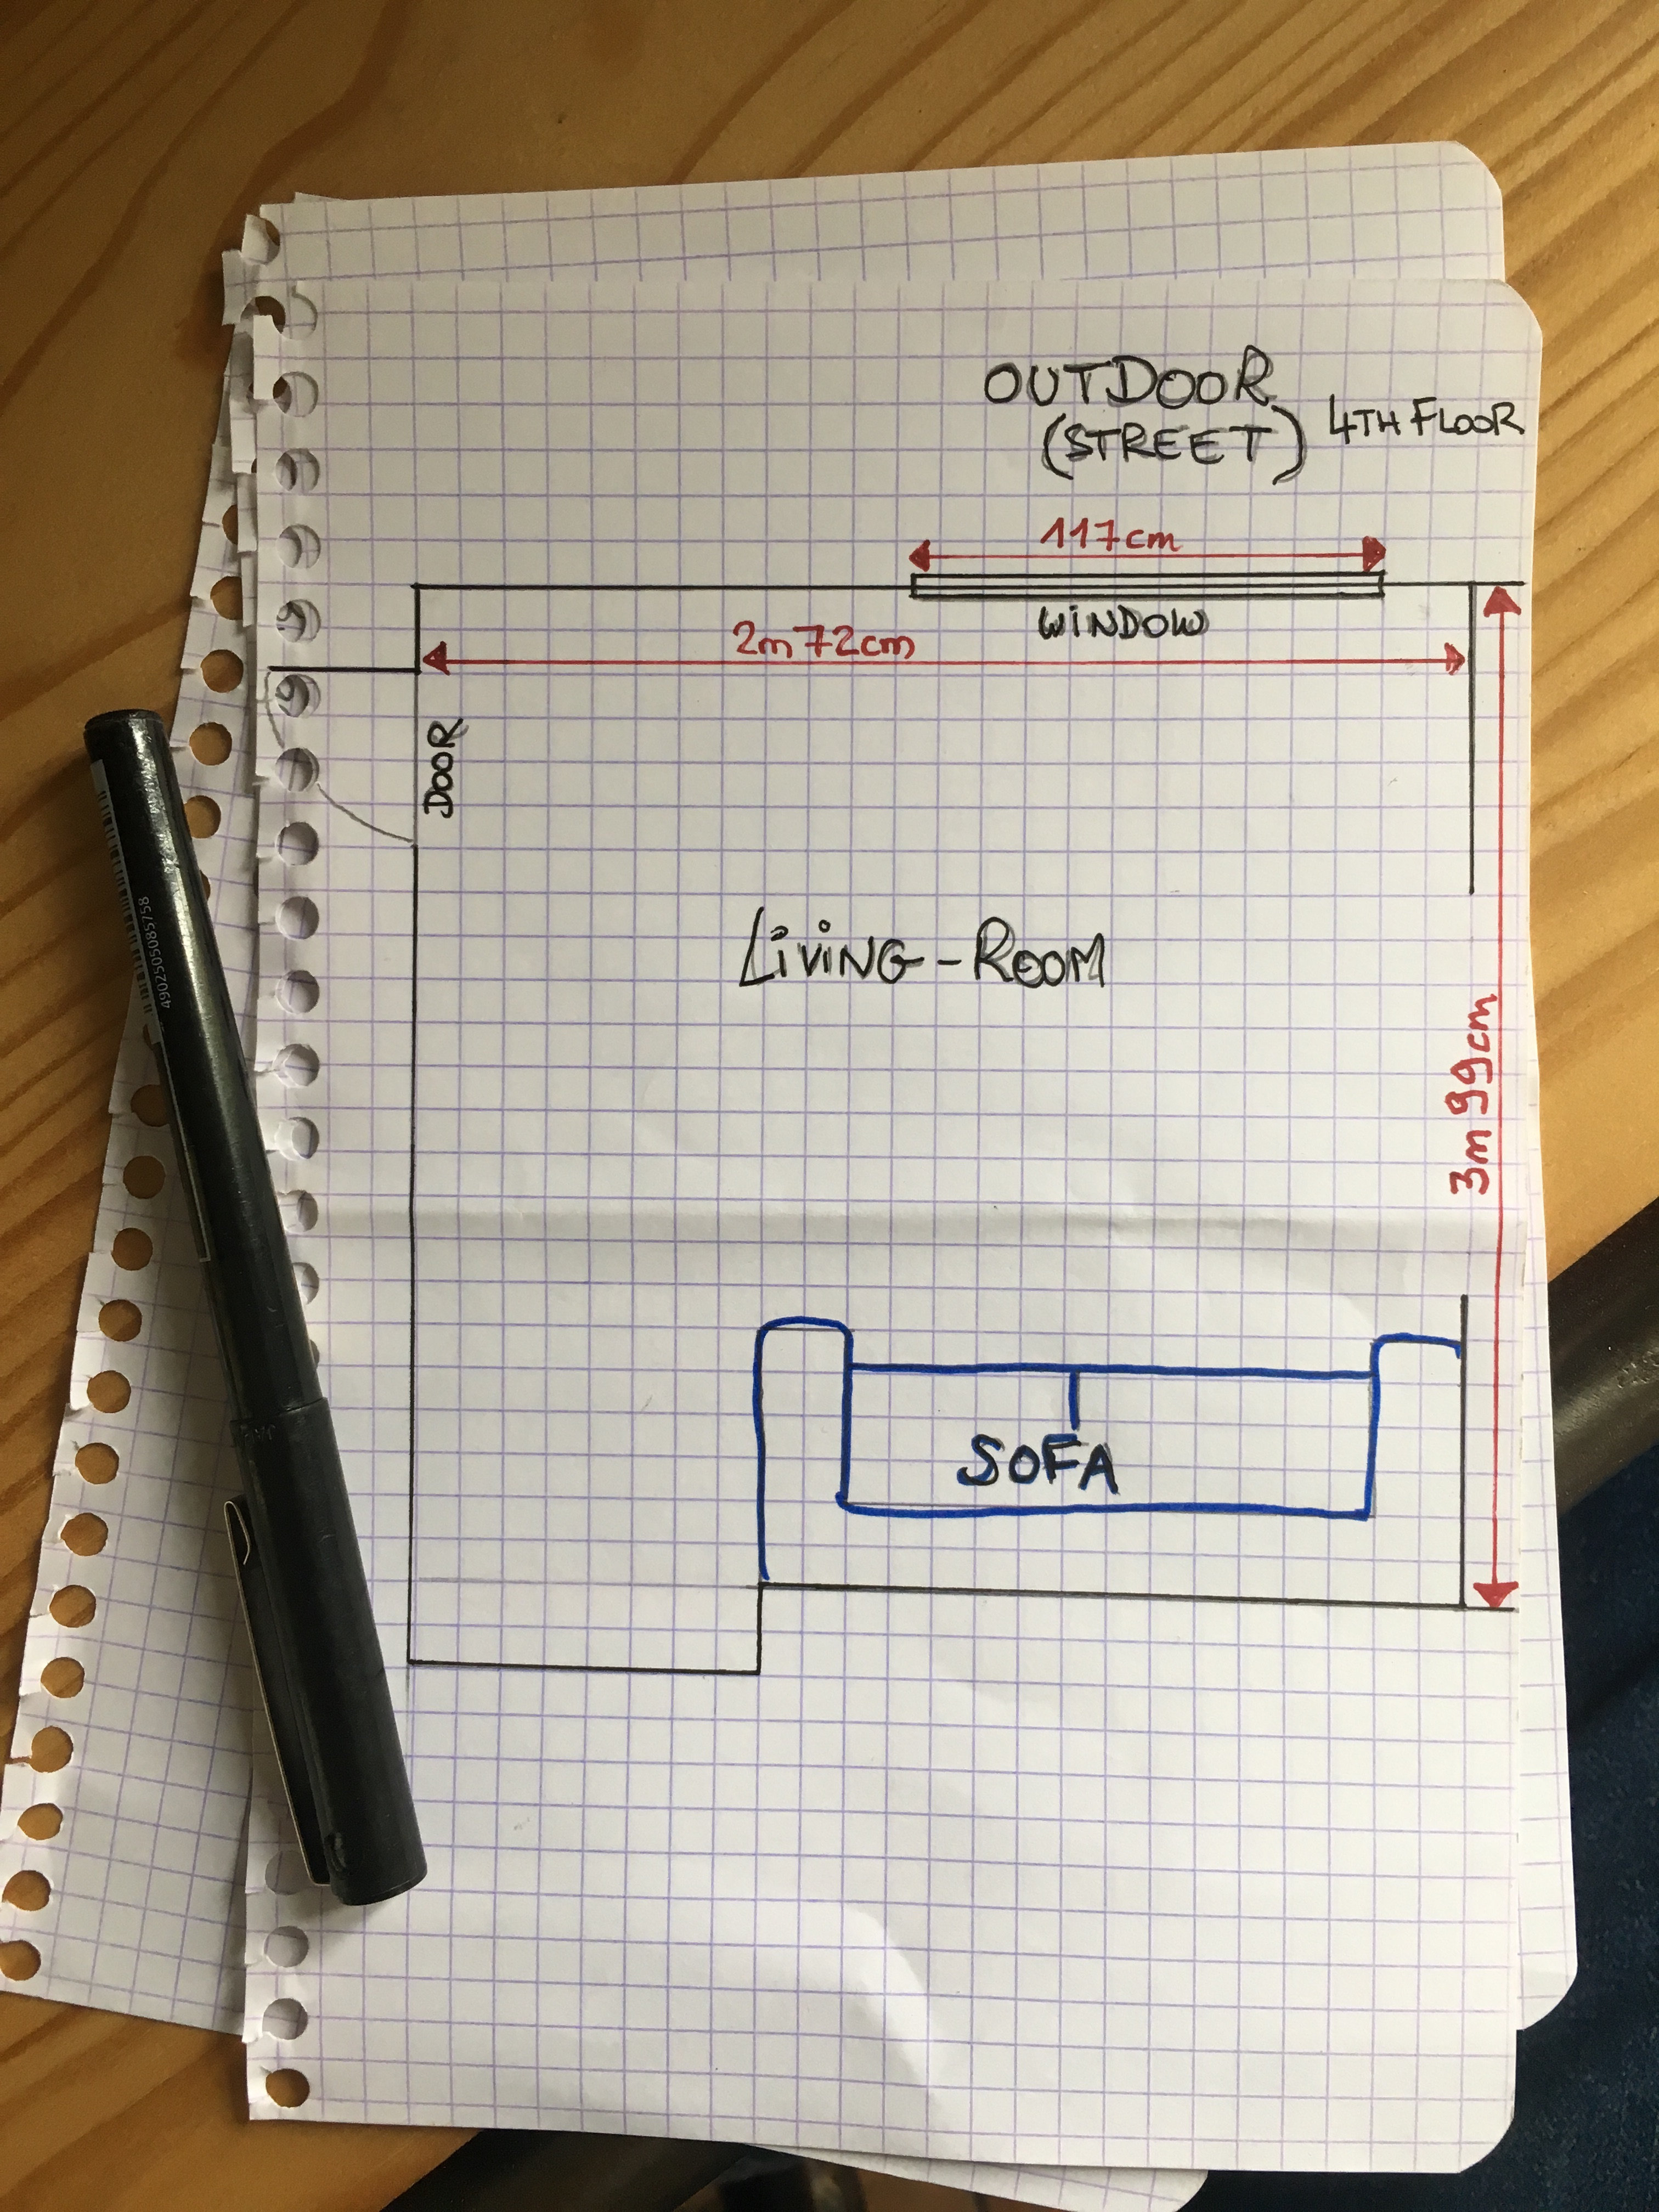 OUTDOOR
(STREET) 4TH FLOOR
117cm
WINDOW
2m72cm
DOOR
LIVING-ROOM
3m99cm
SOFA
4902505085758